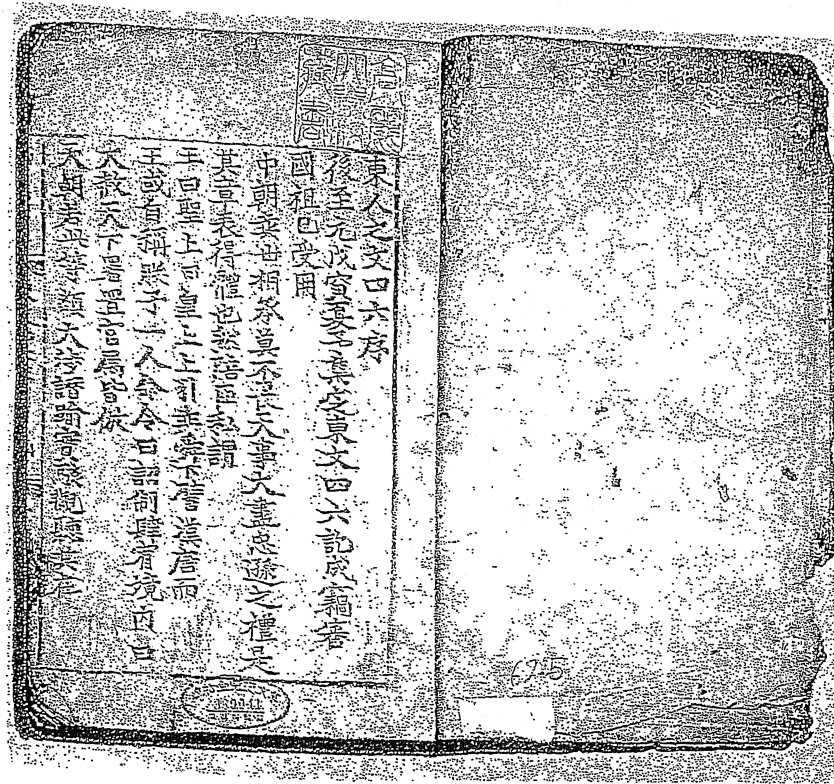 東人之文四六序
後至元戊寅夏予集定東文四六訖成竊審
國祖已受冊
中朝奕世相承莫不畏天事大盡忠遜之禮是
其章表得體也然陪臣私謂
王曰聖上曰皇上上引堯舜下譬漢唐而
王或自稱朕予一人命令曰詔制肆宥境內曰
大赦天下署置官屬皆倣
天朝若此等類大涉譖踰實駭觀聽其在